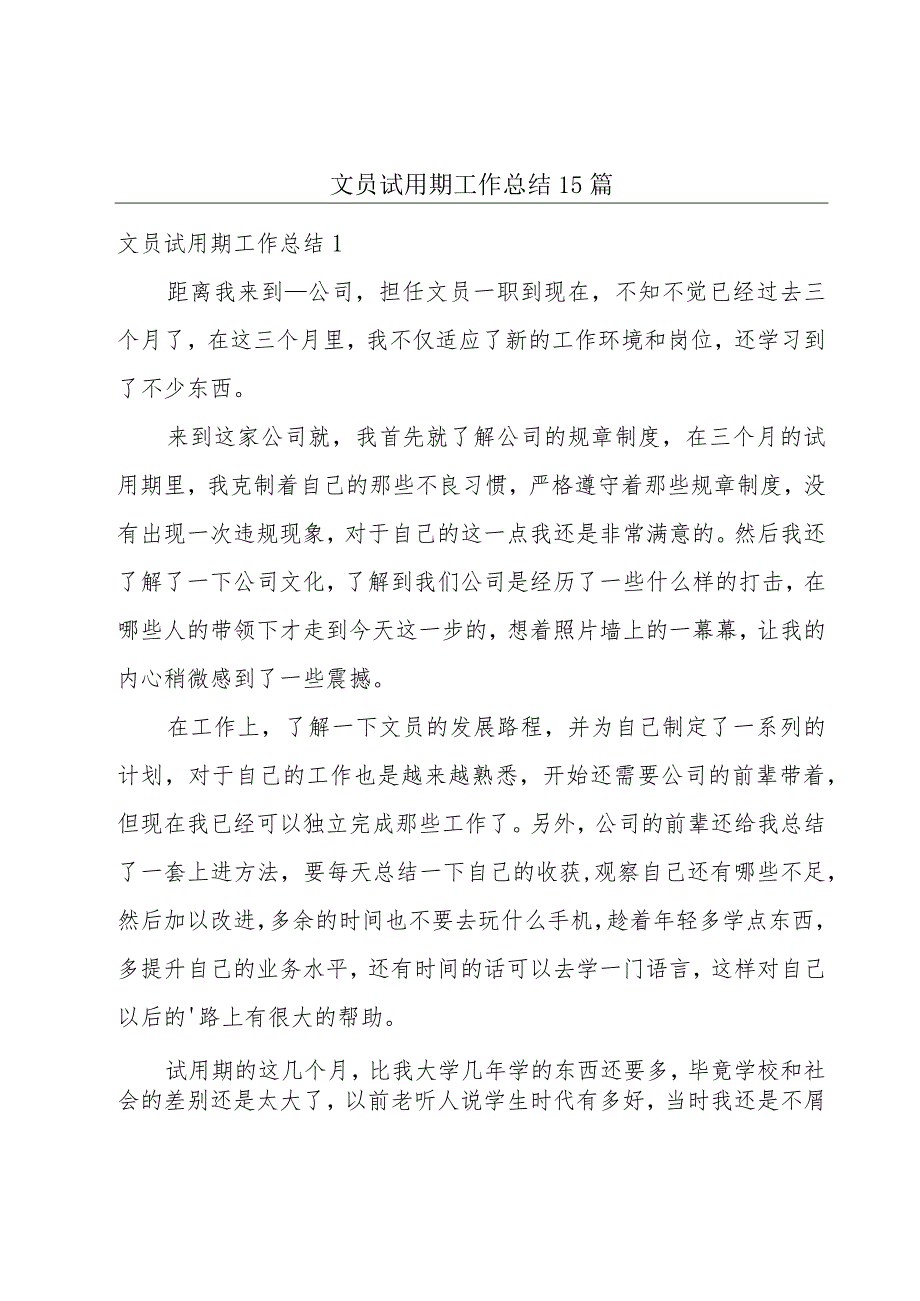 文员试用期工作总结15篇
文员试用期工作总结1
距离我来到—公司，担任文员一职到现在，不知不觉已经过去三
个月了，在这三个月里，我不仅适应了新的工作环境和岗位，还学习到
了不少东西。
来到这家公司就，我首先就了解公司的规章制度，在三个月的试
用期里，我克制着自己的那些不良习惯，严格遵守着那些规章制度，没
有出现一次违规现象，对于自己的这一点我还是非常满意的。然后我还
了解了一下公司文化，了解到我们公司是经历了一些什么样的打击，在
哪些人的带领下才走到今天这一步的，想着照片墙上的一幕幕，让我的
内心稍微感到了一些震撼。
在工作上，了解一下文员的发展路程，并为自己制定了一系列的
计划，对于自己的工作也是越来越熟悉，开始还需要公司的前辈带着，
但现在我已经可以独立完成那些工作了。另外，公司的前辈还给我总结
了一套上进方法，要每天总结一下自己的收获,观察自己还有哪些不足，
然后加以改进，多余的时间也不要去玩什么手机，趁着年轻多学点东西，
多提升自己的业务水平，还有时间的话可以去学一门语言，这样对自己
以后的'路上有很大的帮助。
试用期的这几个月，比我大学几年学的东西还要多，毕竟学校和社
会的差别还是太大了，以前老听人说学生时代有多好，当时我还是不屑